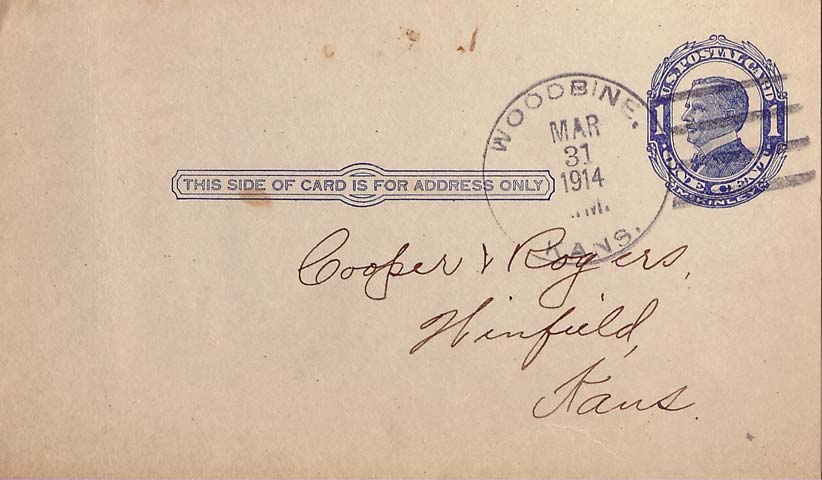 U.S. POSTAL CARD
1 1
ONE CENT
McKINLEY
WOODBINE,
MAR
31
1914
M.
KANS.
THIS SIDE OF CARD IS FOR ADDRESS ONLY
Cooper & Rogers,
Winfield,
Kans.